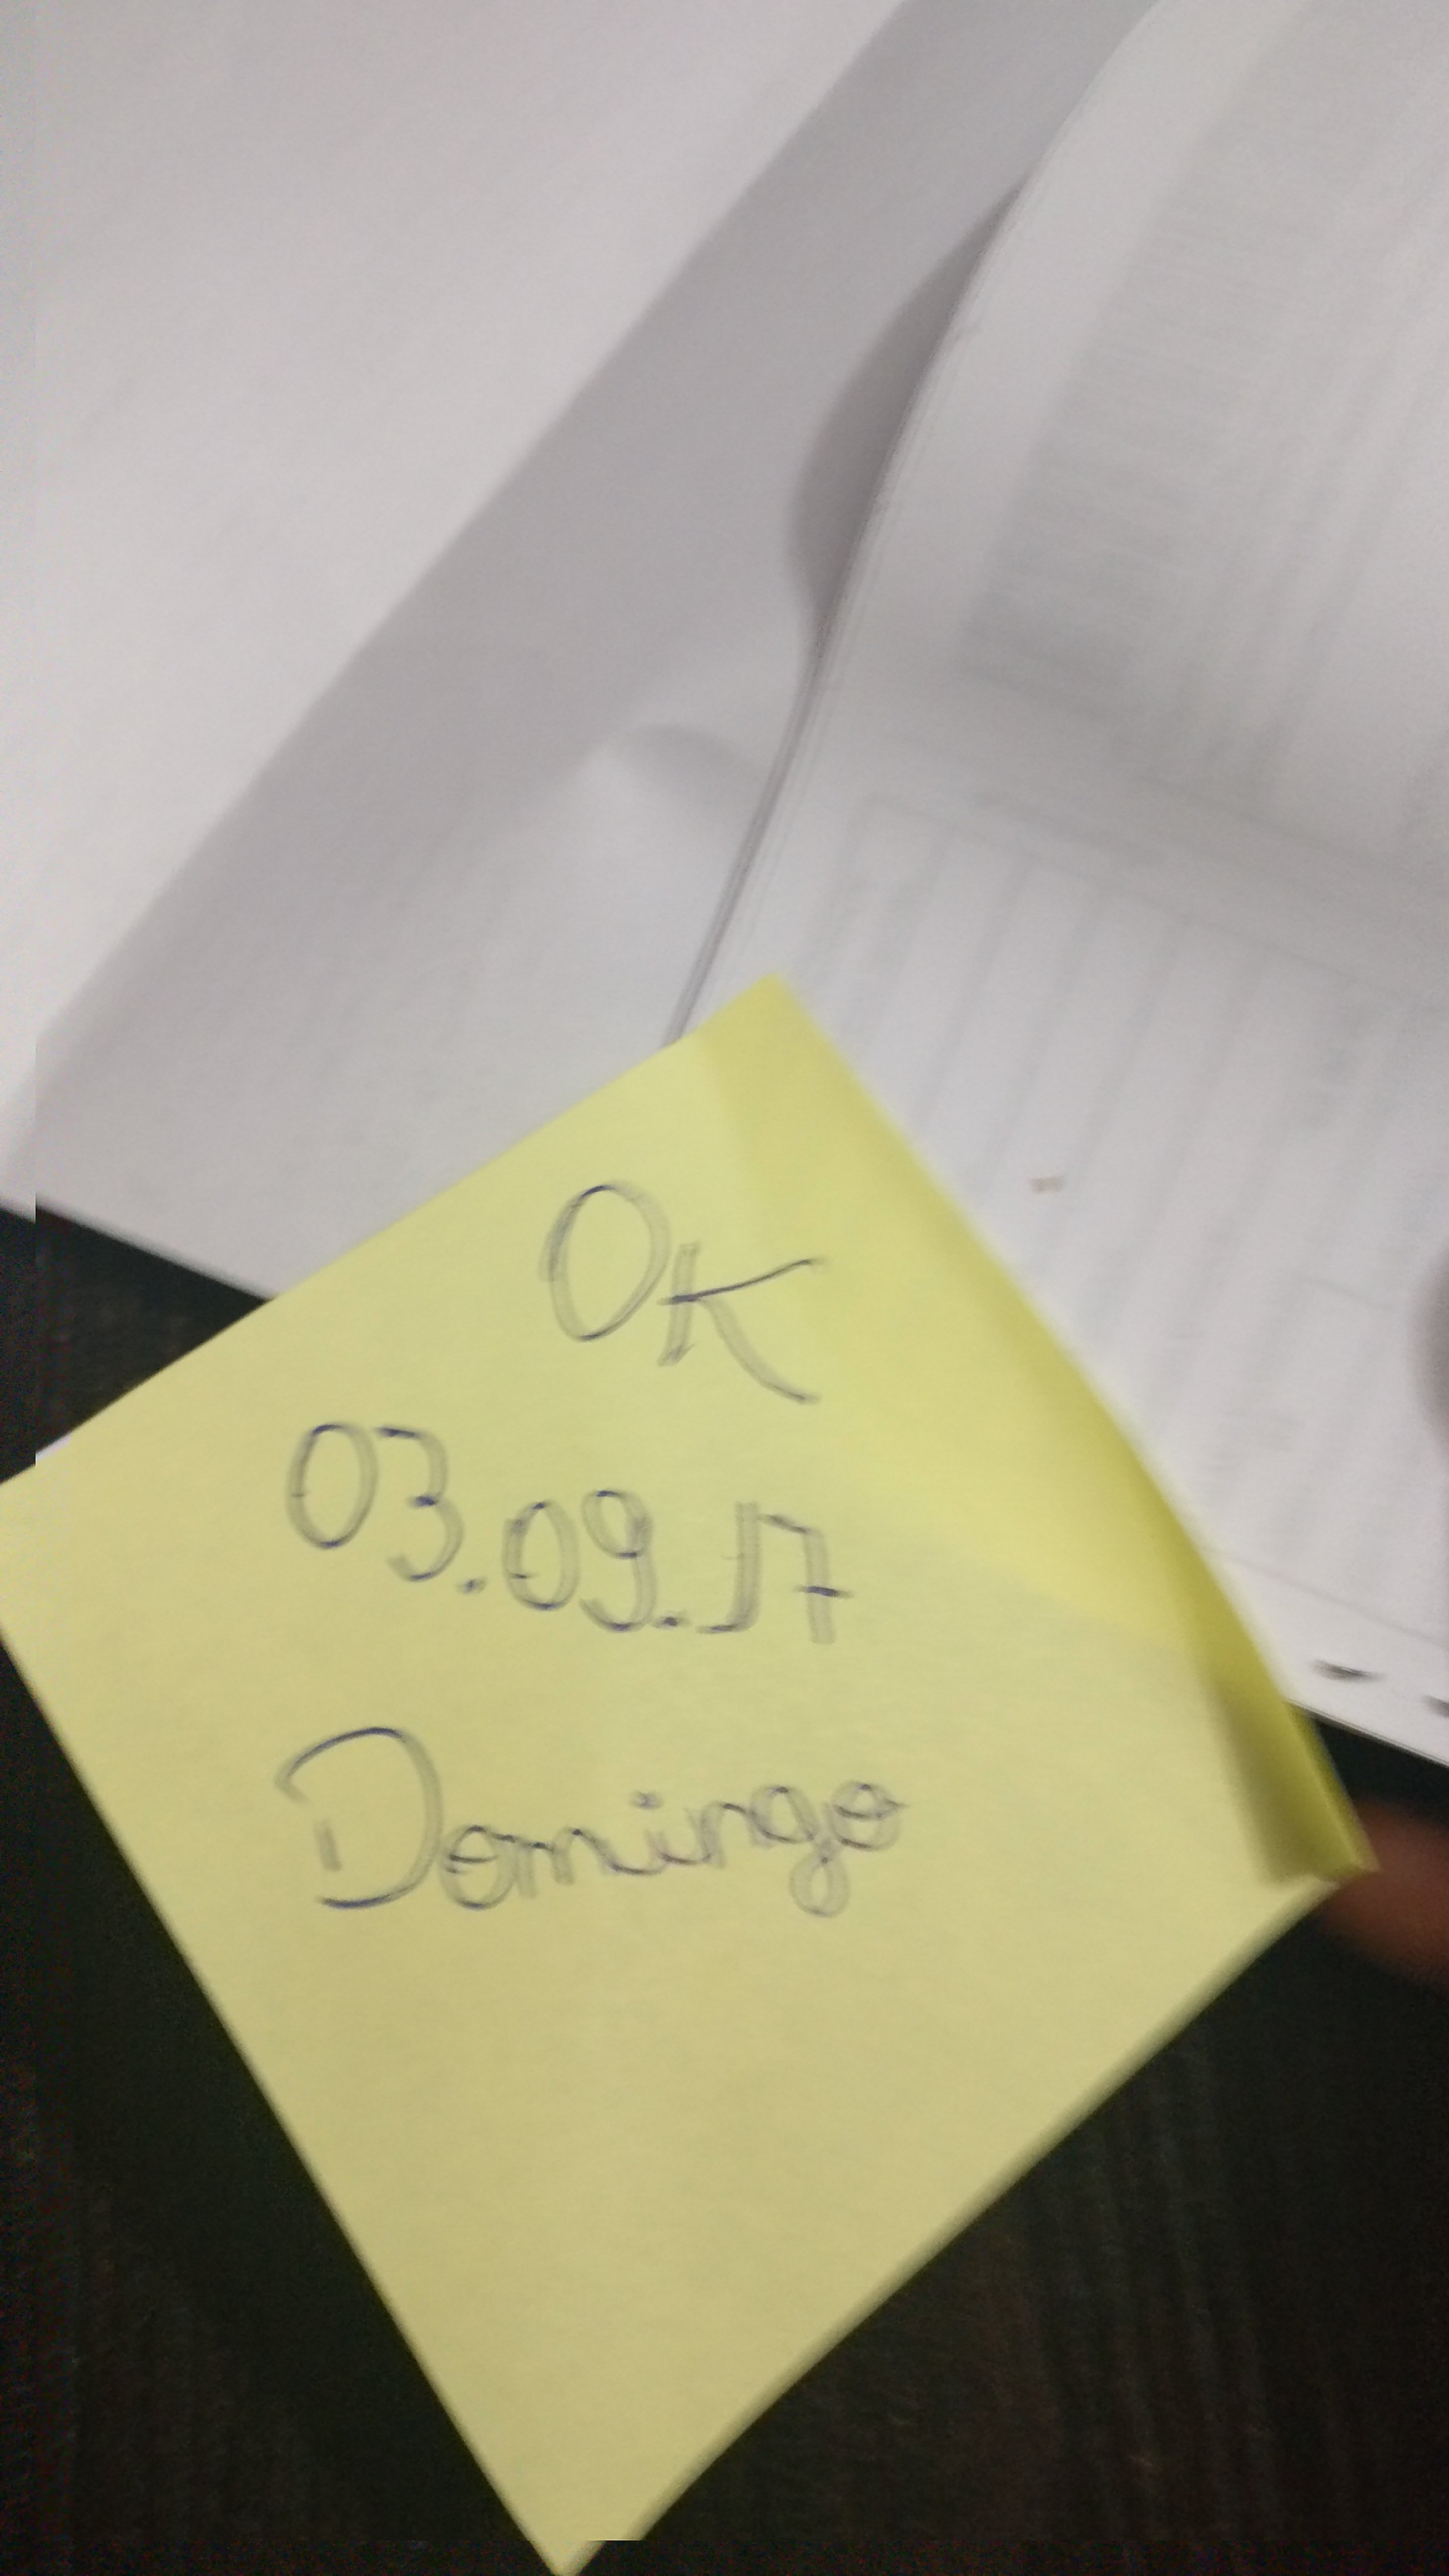 OK
03.09.17
Domingo